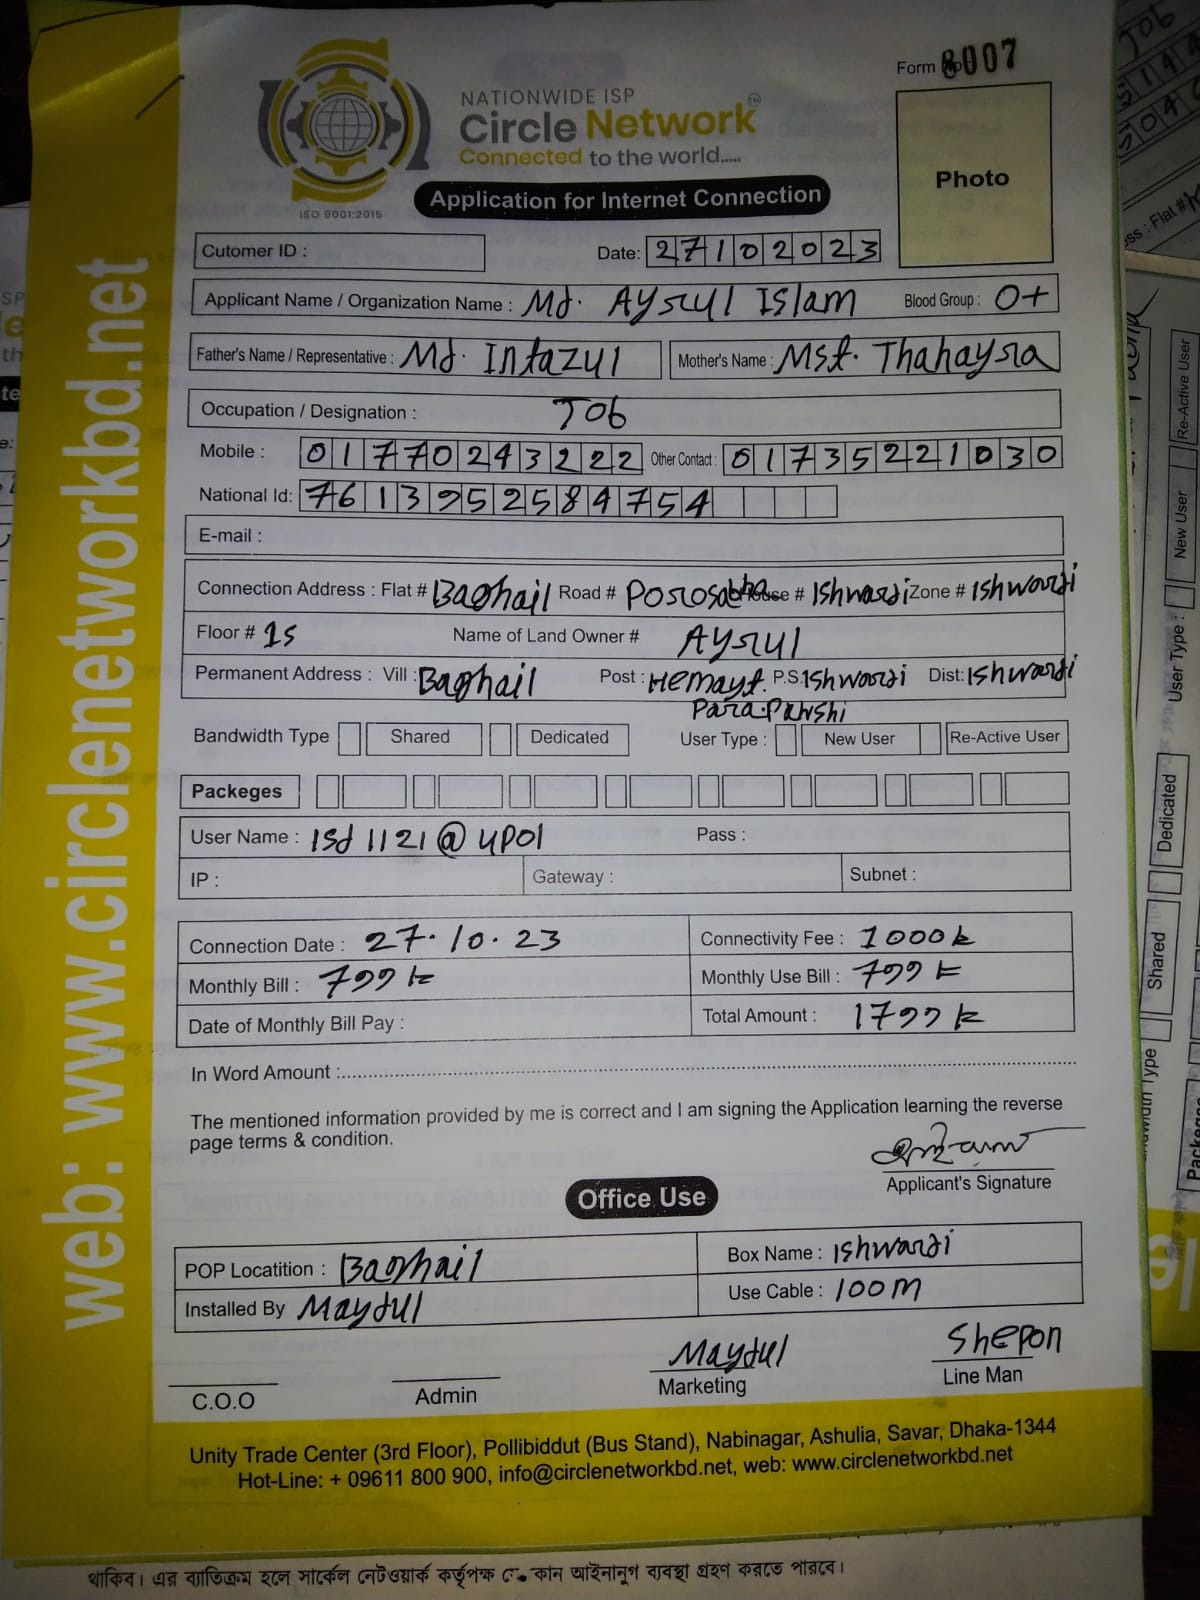 Form No: 8007
NATIONWIDE ISP
Circle Network™
Connected to the world.....
ISO 9001:2015
Application for Internet Connection
Photo
Cutomer ID :
Date: 27102023
Applicant Name / Organization Name : Md. Aysrul Islam Blood Group : O+
Father's Name / Representative : Md. Intazul Mother's Name : Mst. Thahaysra
Occupation / Designation : Job
Mobile : 01770243222 Other Contact : 01735221030
National Id: 7613952584754
E-mail :
Connection Address : Flat # Baghail Road # Porosabha House # Ishwardi Zone # Ishwardi
Floor # 1s Name of Land Owner # Aysrul
Permanent Address : Vill : Baghail Post : Hemayt. P.S. Ishwardi Dist: Ishwardi
Para. Pakshi
Bandwidth Type Shared Dedicated User Type : New User Re-Active User
Packeges
User Name : isd 1121@upol Pass :
IP : Gateway : Subnet :
Connection Date : 27.10.23 Connectivity Fee : 1000 k
Monthly Bill : 799 k Monthly Use Bill : 799 k
Date of Monthly Bill Pay : Total Amount : 1799 k
In Word Amount :
The mentioned information provided by me is correct and I am signing the Application learning the reverse
page terms & condition.
Applicant's Signature
Office Use
POP Locatition : Baghail Box Name : Ishwardi
Installed By Maydul Use Cable : 100M
Maydul Shepon
C.O.O Admin Marketing Line Man
Unity Trade Center (3rd Floor), Pollibiddut (Bus Stand), Nabinagar, Ashulia, Savar, Dhaka-1344
Hot-Line: + 09611 800 900, info@circlenetworkbd.net, web: www.circlenetworkbd.net
web: www.circlenetworkbd.net
থাকিব। এর ব্যাতিক্রম হলে সার্কেল নেটওয়ার্ক কর্তৃপক্ষ যে কোন আইনানুগ ব্যবস্থা গ্রহণ করতে পারবে।
Re-Active User
New User
User Type :
Dedicated
Shared